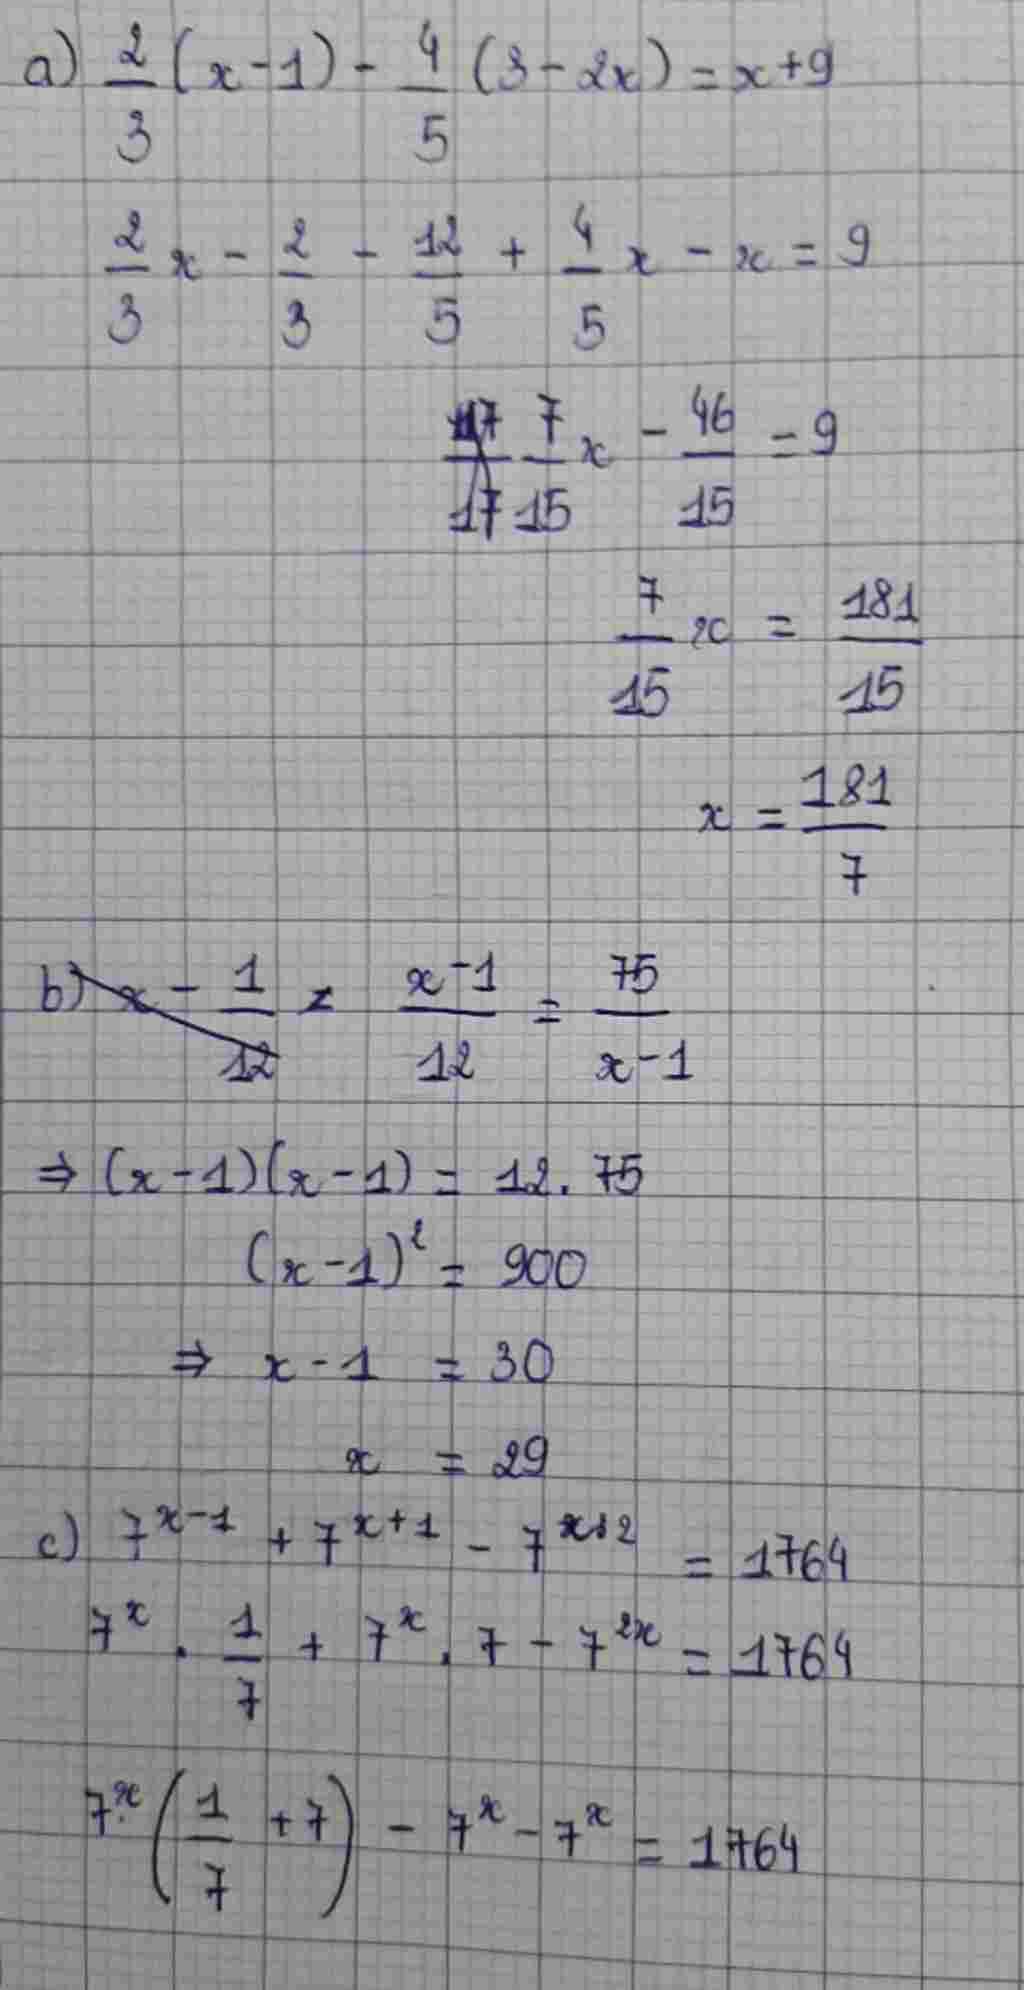 a) 2/3 (x-1) - 4/5 (3-2x) = x+9
2/3 x - 2/3 - 12/5 + 4/5 x - x = 9
7/15 x - 46/15 = 9
7/15 x = 181/15
x = 181/7
b) x - 1/12 = x-1/12 = 75/x-1
⇒ (x-1)(x-1) = 12. 75
(x-1)² = 900
⇒ x-1 = 30
x = 29
c) 7^(x-1) + 7^(x+1) - 7^(x.2) = 1764
7^x . 1/7 + 7^x . 7 - 7^(2x) = 1764
7^x. (1/7 + 7) - 7^x - 7^x = 1764